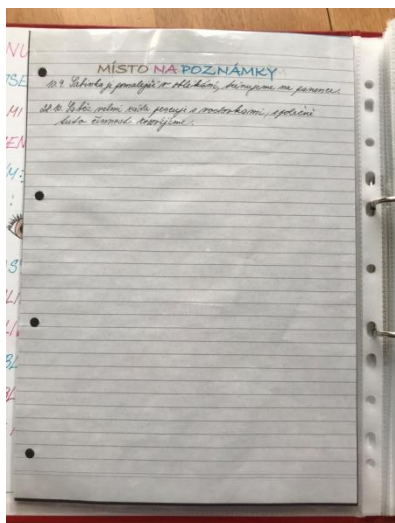 MÍSTO NA POZNÁMKY
10.9. Sabinka je pomalejší v oblékání, trénujeme na panence.
22.10. velmi ráda pracuje s vodovkami, společně
tuto činnost rozvíjíme.
NU
MI